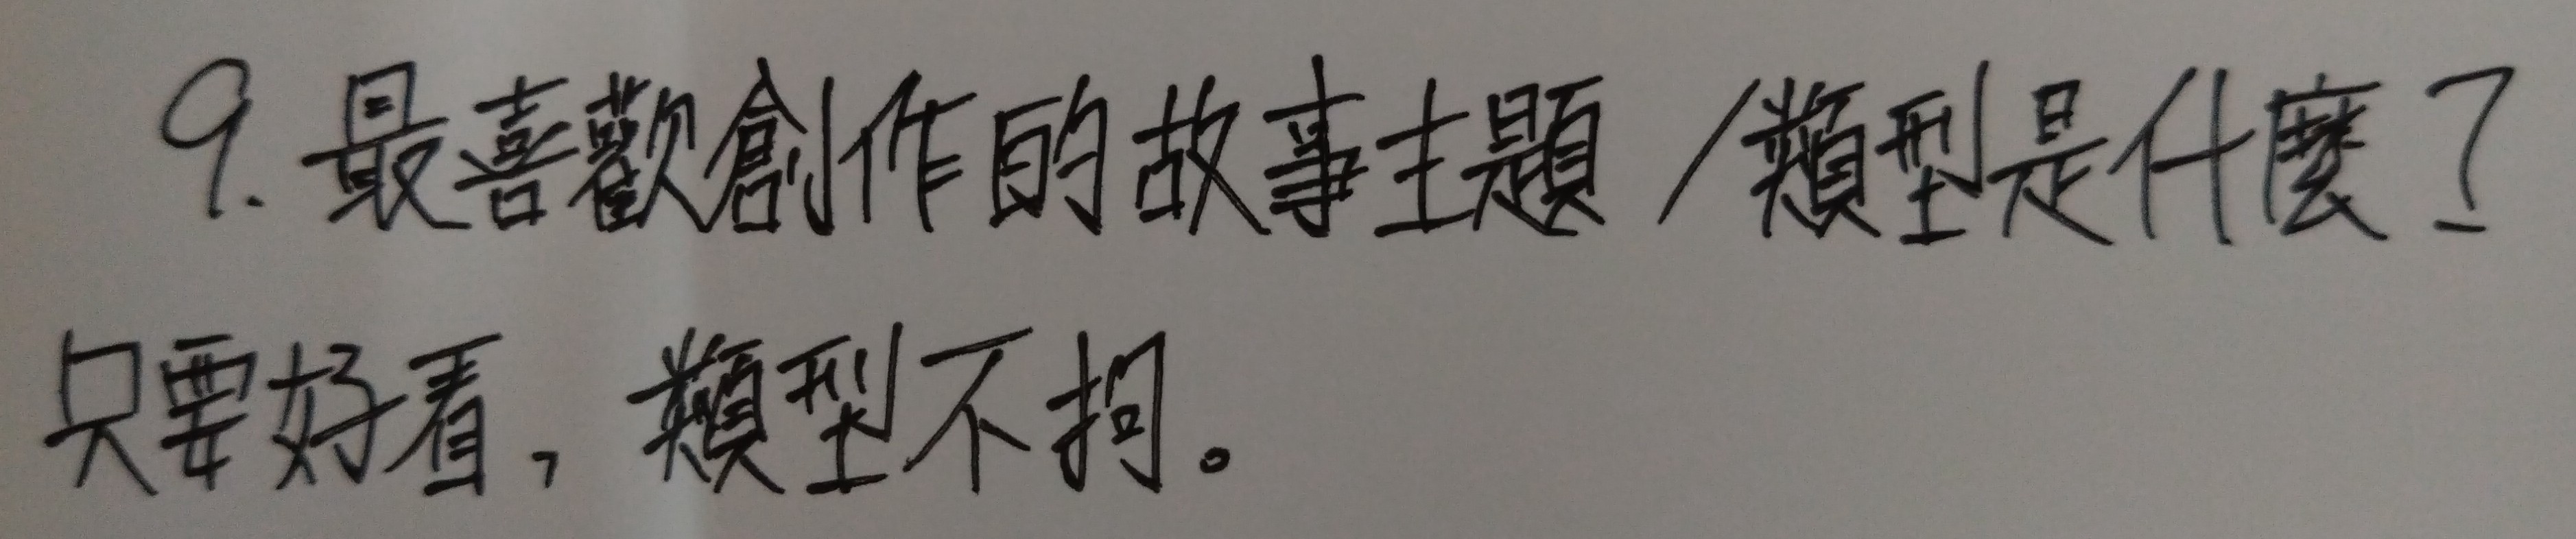 9. 最喜歡創作的故事主題/類型是什麼?
只要好看,類型不拘。